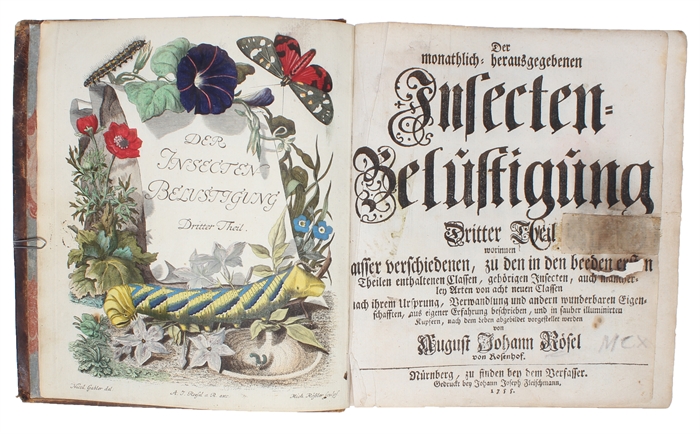 DER
INSECTEN
BELUSTIGUNG
Dritter Theil.
A. J. Rösel v. R. exc.
Der
monathlich-herausgegebenen
Insecten-
Belustigung
Dritter Theil
worinnen
ausser verschiedenen, zu den in den beeden ersten
Theilen enthaltenen Classen, gehörigen Insecten, auch mancher-
ley Arten von acht neuen Classen
nach ihrem Ursprung, Verwandlung und andern wunderbaren Eigen-
schafften, aus eigener Erfahrung beschrieben, und in sauber illuminirten
Kupfern, nach dem Leben abgebildet vorgestellet werden
von
August Johann Rösel
von Rosenhof.
MCX
Nürnberg, zu finden bey dem Verfasser.
Gedruckt bey Johann Joseph Fleischmann,
1755.